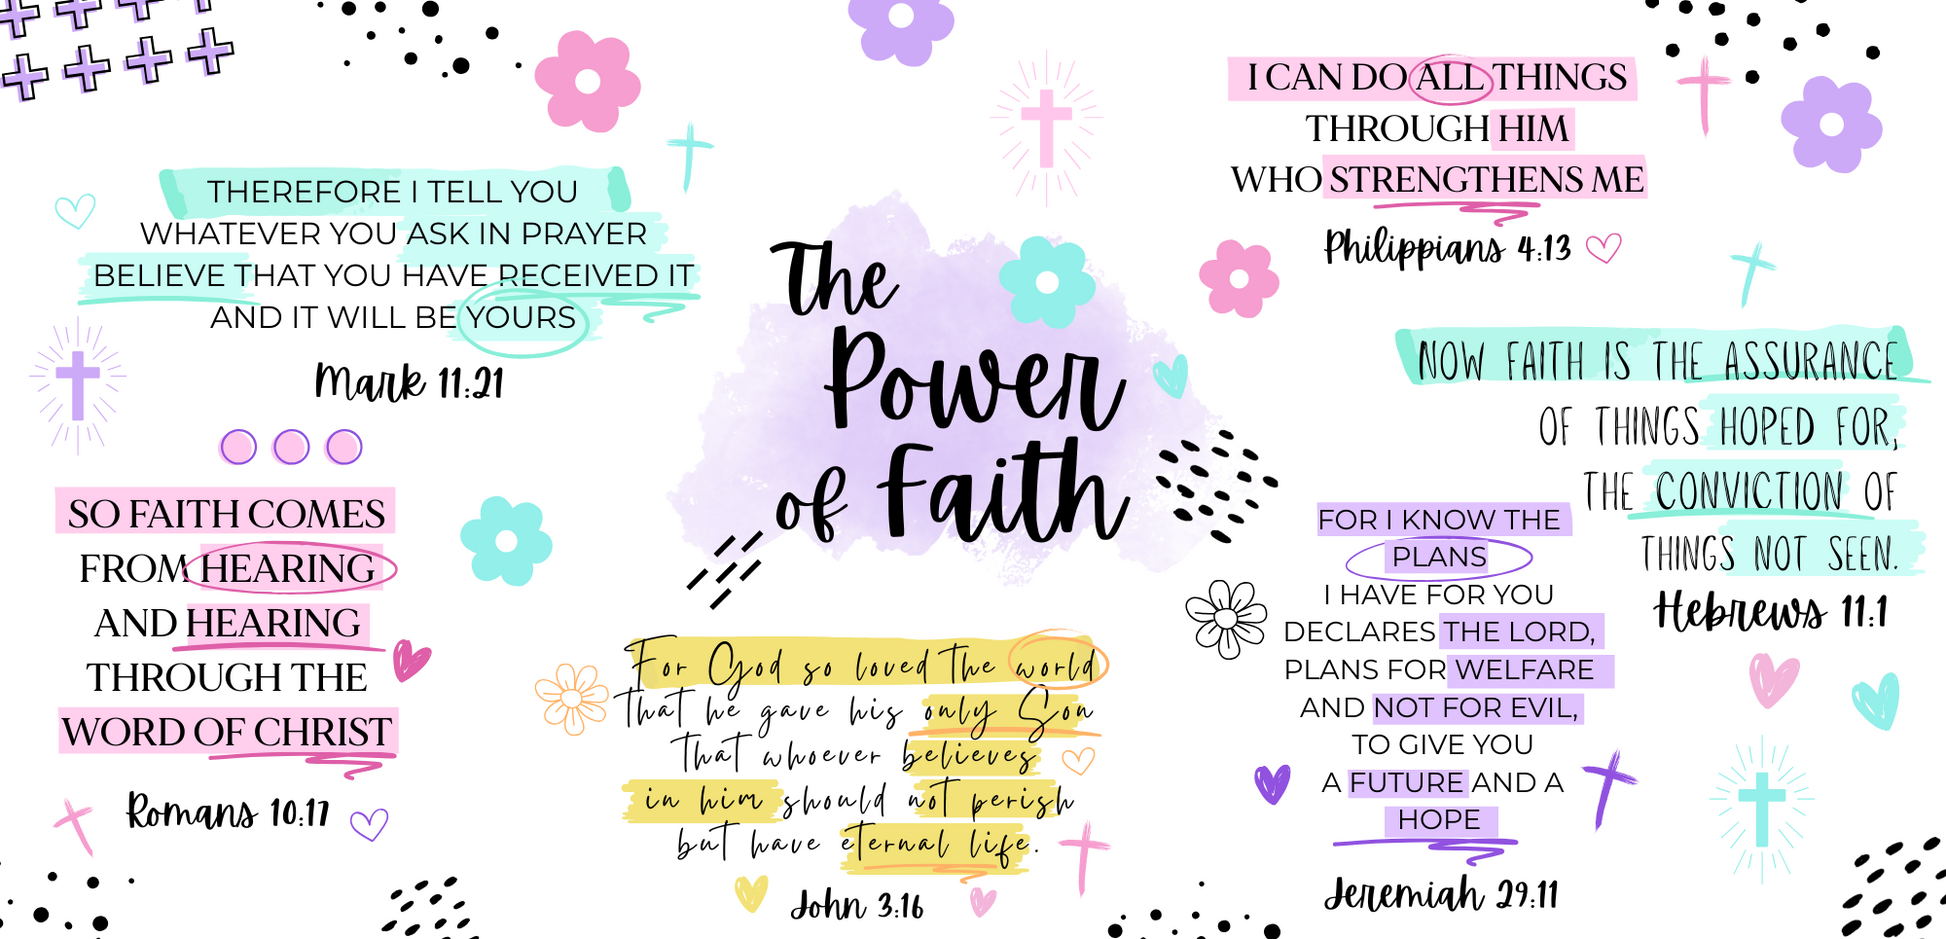 THEREFORE I TELL YOU
WHATEVER YOU ASK IN PRAYER
BELIEVE THAT YOU HAVE RECEIVED IT
AND IT WILL BE YOURS
Mark 11:21
SO FAITH COMES
FROM HEARING
AND HEARING
THROUGH THE
WORD OF CHRIST
Romans 10:17
The
Power
of Faith
For God so loved the world
that he gave his only Son
that whoever believes
in him should not perish
but have eternal life.
John 3:16
I CAN DO ALL THINGS
THROUGH HIM
WHO STRENGTHENS ME
Philippians 4:13
NOW FAITH IS THE ASSURANCE
OF THINGS HOPED FOR,
THE CONVICTION OF
THINGS NOT SEEN.
Hebrews 11:1
FOR I KNOW THE
PLANS
I HAVE FOR YOU
DECLARES THE LORD,
PLANS FOR WELFARE
AND NOT FOR EVIL,
TO GIVE YOU
A FUTURE AND A
HOPE
Jeremiah 29:11